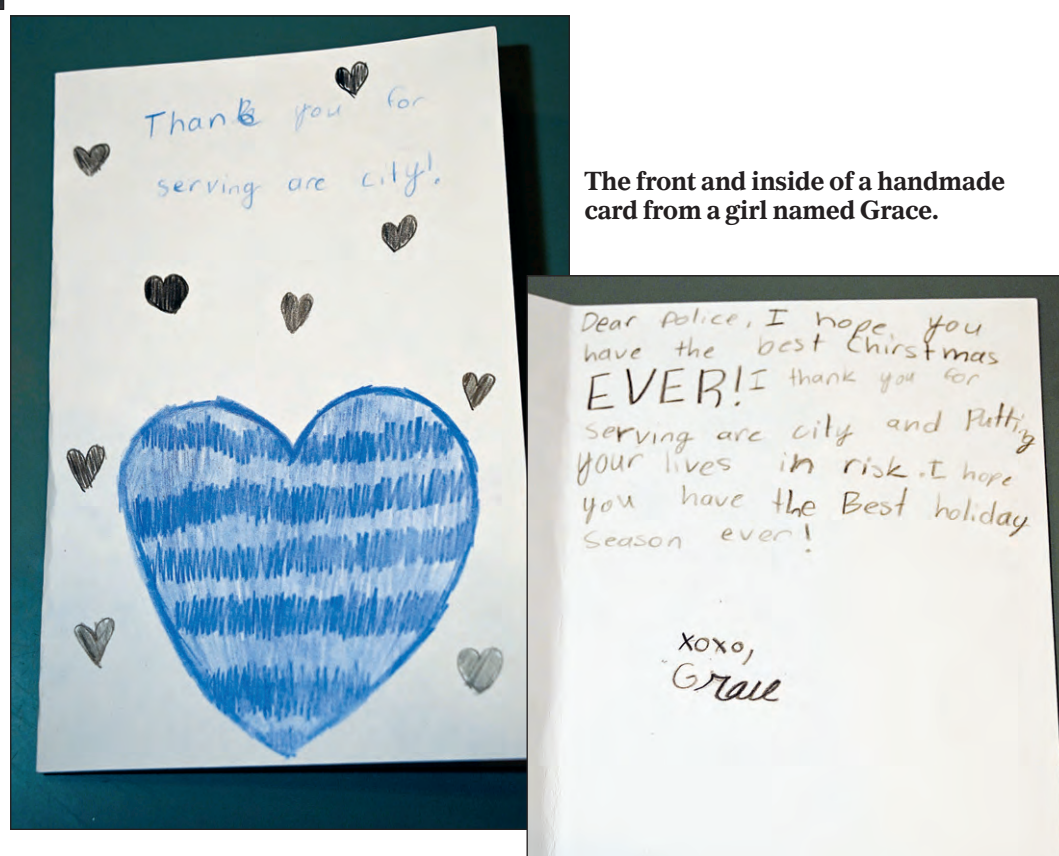 Thank you for
serving are city!
The front and inside of a handmade
card from a girl named Grace.
Dear Police, I hope you
have the best Chirstmas
EVER! I thank you for
serving are city and Putting
your lives in risk. I hope
you have the Best holiday
season ever!
xoxo,
Grace